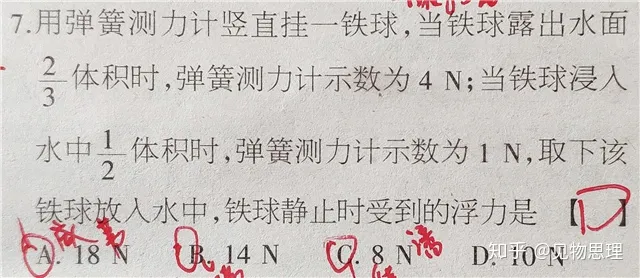 7.用弹簧测力计竖直挂一铁球,当铁球露出水面
2/3体积时,弹簧测力计示数为 4 N;当铁球浸入
水中1/2体积时,弹簧测力计示数为 1 N,取下该
铁球放入水中,铁球静止时受到的浮力是 【D】
A. 18 N B. 14 N C. 8 N D. 10 N
知乎 @见物思理